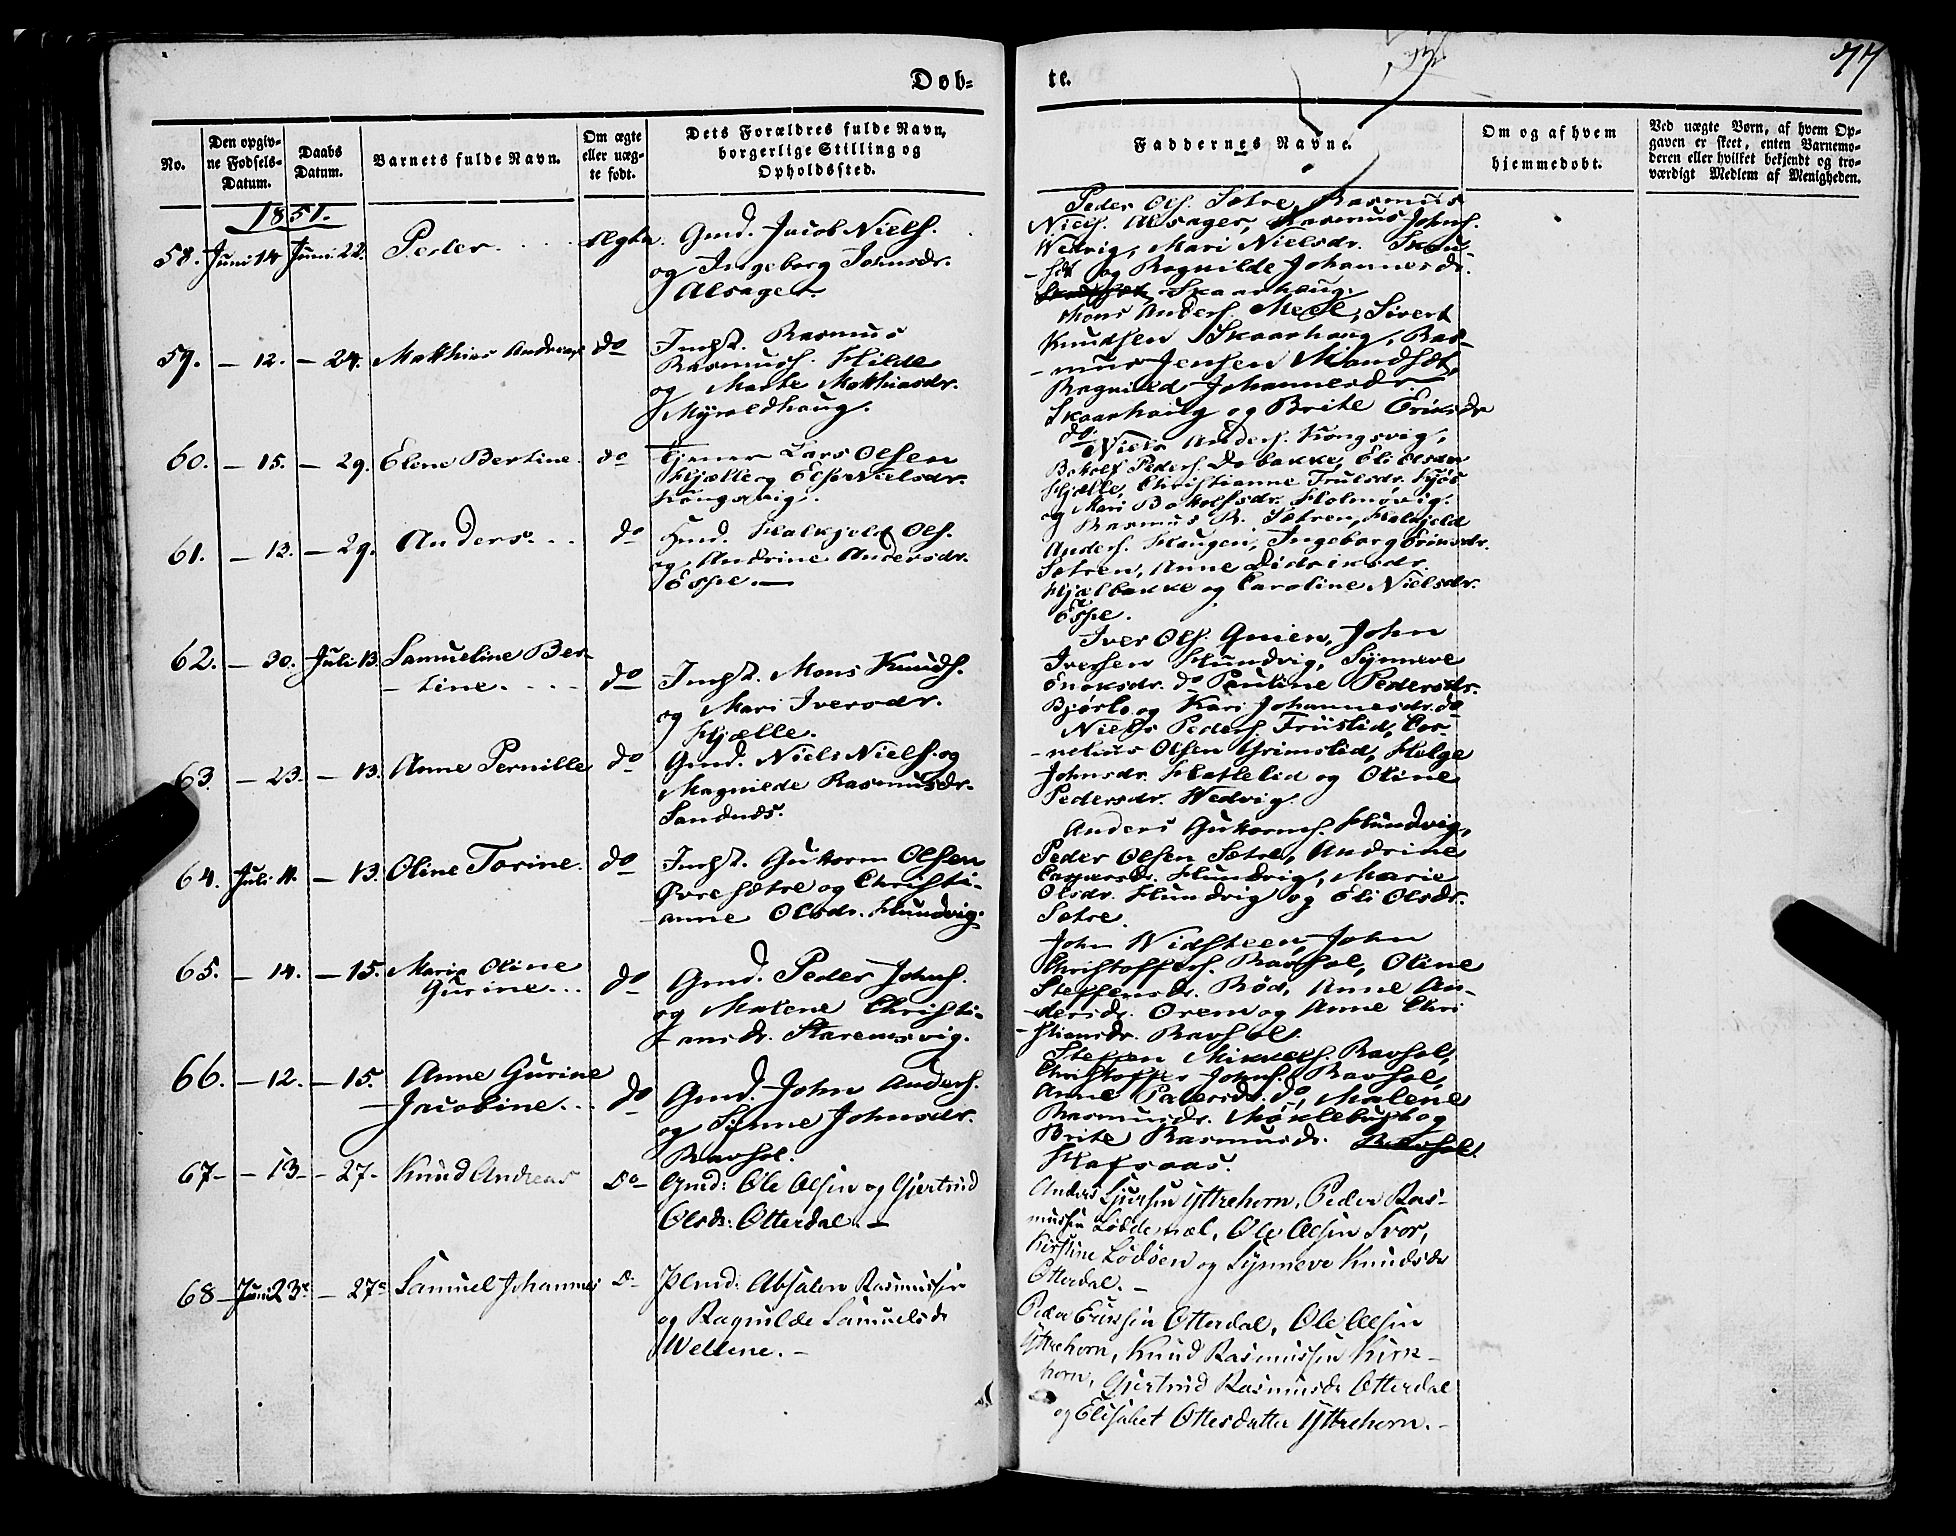 77
Døb-
te.
No.
Den opgiv-
ne Fødsels-
Datum.
Daabs
Datum.
Barnets fulde Navn.
Om ægte
eller uæg-
te født.
Dets Forældres fulde Navn,
borgerlige Stilling og
Opholdssted.
Faddernes Navne.
Om og af hvem
hjemmedøbt.
Ved uægte Børn, af hvem Op-
gaven er skeet, enten Barnemo-
deren eller hvilket bekjendt og tro-
værdigt Medlem af Menigheden.
1851.
58. Juni 14 Juni 22. Peder. Ægte. Gmd. Jacob Niels.
og Ingeborg Johnsdr.
Alsager.
Peder Ols. Sætre, Rasmus
Niels. Alsager, Rasmus Johns.
Wedvig, Mari Nielsdr.
og Ragnilde Johannesdr.
Skaarhaug.
59. – 12. – 24. Matthias Andreas do Impst. Rasmus
Rasmuss. Hilde
og Marte Matthiasdr.
Myroldhaug.
Mons Anders. Mek, Sivert
Knudsen Skaarhaug, Ras-
mus Jensen Mandsæt,
Ragnild Johannesdr
Skaarhaug og Brite Eriksdr
do.
60. – 15. – 29. Elene Bertine. do Tjener Lars Olsen
Hjælle og Else Nielsdr.
Kongsvig.
Niels Anders. Kongsvig,
Botolf Peders. do bakke, Eli Olsdr
Hjelle, Christianne Trulsdr.
og Mari Botolfsdr. Holmøvig.
61. – 13. – 29. Anders. do Hmd. Halkjeld Ols.
og Andrine Andersdr.
Espe. —
Rasmus R. Sætren, Halkjeld
Anders. Haugen, Ingeborg Eriksdr.
Sætren, Anne Didriksdr.
Hjælbakke og Caroline Nielsdr.
Espe.
62. – 30. Juli 13. Samueline Ber-
-tine. do Impst. Mons Knuds.
og Mari Iversdr.
Hjælle.
Iver Ols. Qvien, John
Iversen Hundvig, Synneve
Enoksdr. do Pauline Pedersdr.
Bjørlo og Kari Johannesdr. do
63. – 23. – 13. Anne Pernille do Gmd. Niels Niels. og
Magnilde Rasmusdr.
Sandnæs.
Niels Peders. Frustid, Cor-
-nelius Olsen Grimstid, Helge
Johnsdr. Hatlelid og Oline
Pedersdr. Wedvig.
64. Juli 4. – 13. Oline Torine. do Impst. Guttorm Olsen
Øvre Sætre og Christi-
anne Olsdr. Hundvig.
Anders Guttorms. Hundvig,
Peder Olsen Sætre, Andrine
Caspersdr. Hundvig, Marie
Olsdr. Hundvig og Eli Olsdr.
Sætre.
65. – 14. – 15. Marie Oline
Gurine. do Gmd. Peder Johns.
og Malene Christi-
ansdr. Starensvig.
John Widsteen, John
Christoffers. Ravhol, Oline
Steffensdr. Rød, Anne An-
-dersdr. Orem og Anne Chri
-stiansdr. Ravhol.
66. – 12. – 15. Anne Gurine
Jacobine. do Gmd. John Anders.
og Synne Johnsdr.
Ravhol.
Steffen Mikkels. Ravhol,
Christoffer Johns. Ravhol,
Anne Pedersdr. do, Malene
Rasmusdr. Møklebust og
Brite Rasmusdr. Ravhol.
Hafsaas.
67– – 13– – 27– Knud Andreas Do– Gmd: Ole Olsen og Gjertrud
Olsdr: Otterdal. –
Anders Sjursen Yttrehorn, Peder Ras-
mussen Løddemæl, Ole Olsen Svor,
Kirstine Lødøen og Synneve Knudsdr
Otterdal. –
68– Juni 23de – 27de Samuel Johannes D– Plmd: Absalon Rasmussen
og Ragnilde Samuelsdr
Wellene. –
Peder Erikssen Otterdal, Ole Olsen
Yttrehorn, Knud Rasmussen Kirk-
horn, Gjertrud Rasmusdr Otterdal
og Elisabet Ottesdatter Yttrehorn. –